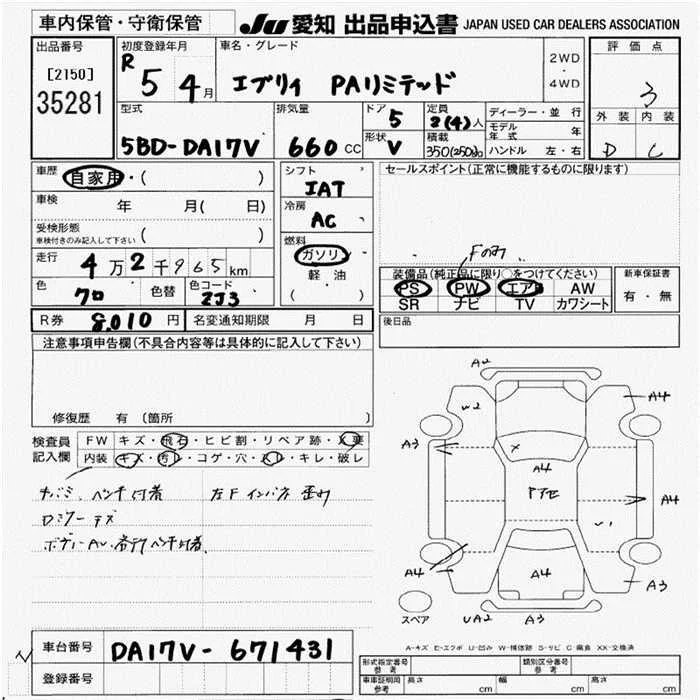 車内保管・守衛保管
JU 愛知 出品申込書 JAPAN USED CAR DEALERS ASSOCIATION
出品番号
[2150]
35281
初度登録年月
R 5 4月
車名・グレード
エブリイ PAリミテッド
2WD
・
4WD
評価点
3
外装 内装
D C
型式
5BD-DA17V
排気量
660 CC
ドア 5
形状 V
定員 2(4)人
積載 350(250)kg
ディーラー・並行
モデル年式 年
ハンドル 左・右
車歴 自家用・( )
車検 年 月( 日)
受検形態
車検付きのみ記入して下さい ( )
走行 4万2千965km
色 クロ 色替 色コード ZJ3
シフト IAT
冷房 AC
燃料
ガソリン
軽油
( )
セールスポイント(正常に機能するものに限ります)
装備品(純正品に限り○をつけてください)
PS PW エアB AW
SR ナビ TV カワシート
新車保証書
有・無
R券 8,010円 名変通知期限 月 日
後日品
注意事項申告欄(不具合内容等は具体的に記入して下さい)
修復歴 有 〔箇所
検査員
記入欄
FW キズ・飛石・ヒビ割・リペア跡・X要
内装 キズ・汚レ・コゲ・穴・スレ・キレ・破レ
A2
W2
A4
A3
X
A4
A4
A4
A4
A3
UA2
A3
スペア
A-キズ E-エクボ U-凹み W-補修跡 S-サビ C-腐食 XX-交換済
車台番号 DA17V-671431
登録番号
形式指定番号
参考
類別区分番号
参考
車庫証明用
参考
長さ cm 幅 cm 高さ cm